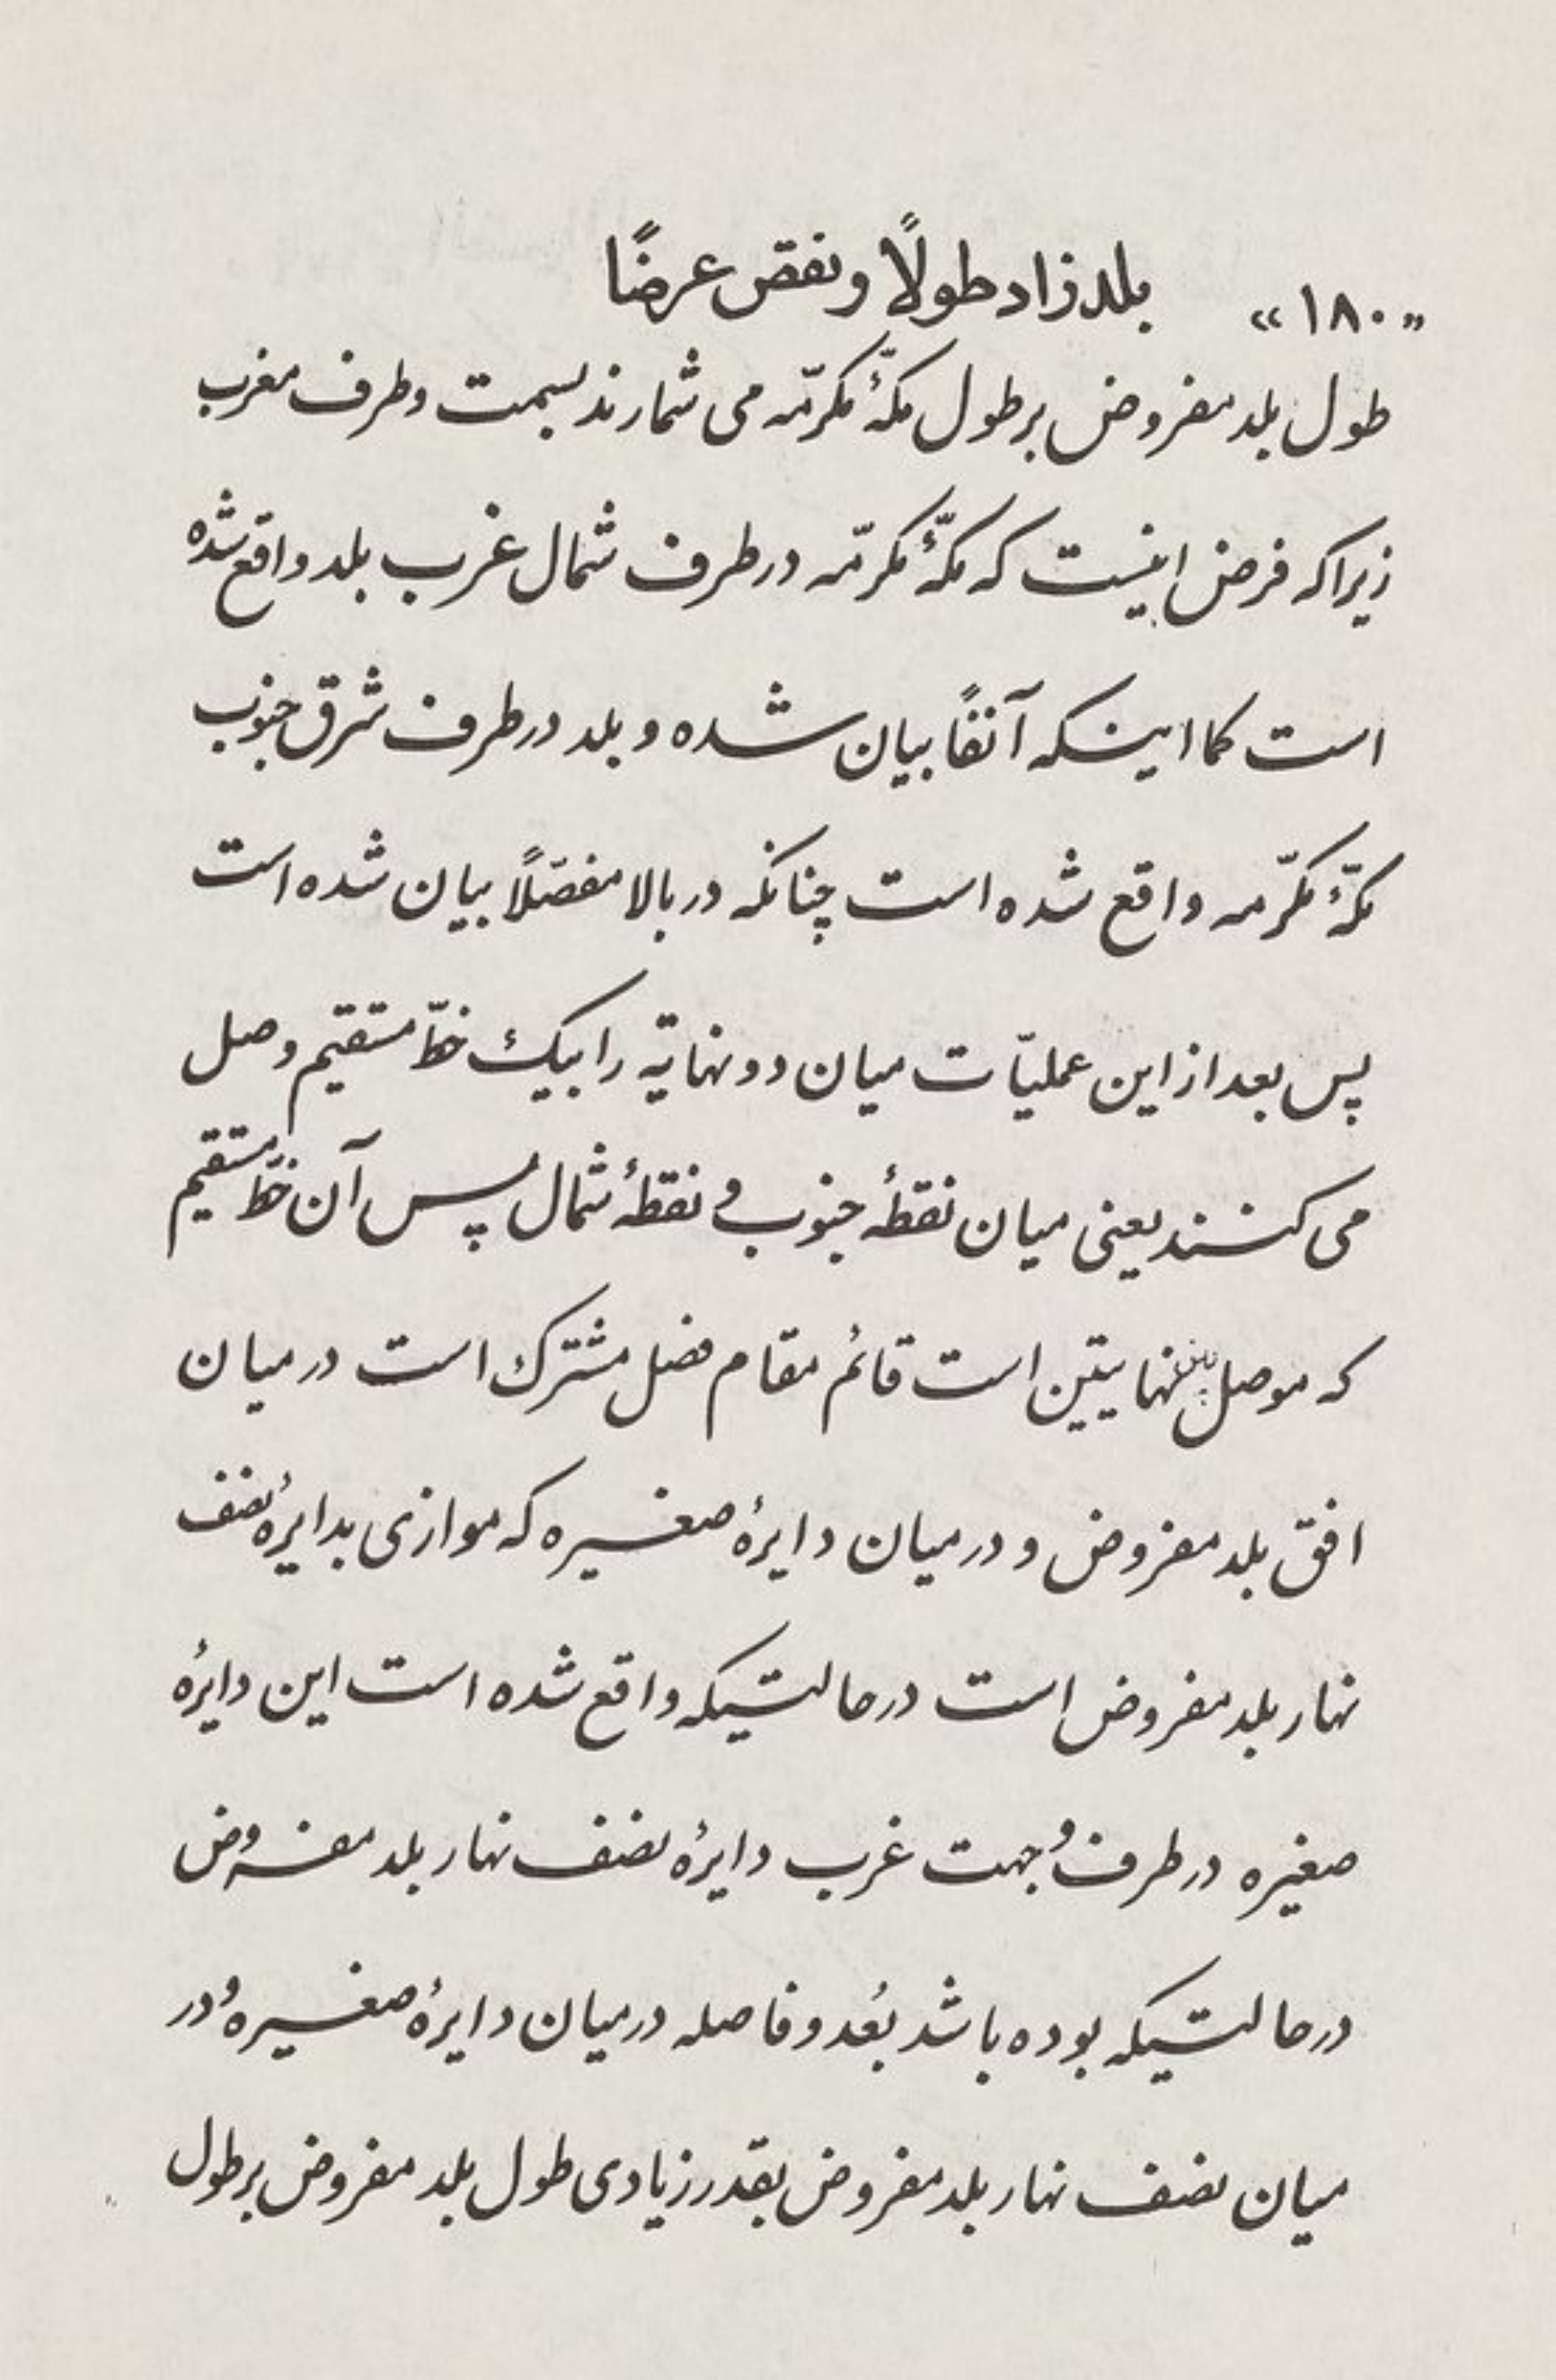 «۱۸۰» بلد زاد طولاً و نقص عرضاً
طول بلد مفروض بر طول مکّهٔ مکرّمه می شمارند بسمت و طرف مغرب
زیرا که فرض اینست که مکّهٔ مکرّمه در طرف شمال غرب بلد واقع شده
است کما اینکه آنفاً بیان شده و بلد در طرف شرق جنوب
مکّهٔ مکرّمه واقع شده است چنانکه در بالا مفصّلاً بیان شده است
پس بعد از این عملیّات میان دو نهایة را بیک خطّ مستقیم وصل
می کنند یعنی میان نقطهٔ جنوب و نقطهٔ شمال پس آن خطّ مستقیم
که موصل بین نهایتین است قائم مقام فصل مشترک است در میان
افق بلد مفروض و در میان دایرهٔ صغیره که موازی بدایرهٔ نصف
نهار بلد مفروض است در حالتیکه واقع شده است این دایرهٔ
صغیره در طرف و جهت غرب دایرهٔ نصف نهار بلد مفروض
در حالتیکه بوده باشد بُعد و فاصله در میان دایرهٔ صغیره و در
میان نصف نهار بلد مفروض بقدر زیادی طول بلد مفروض بر طول